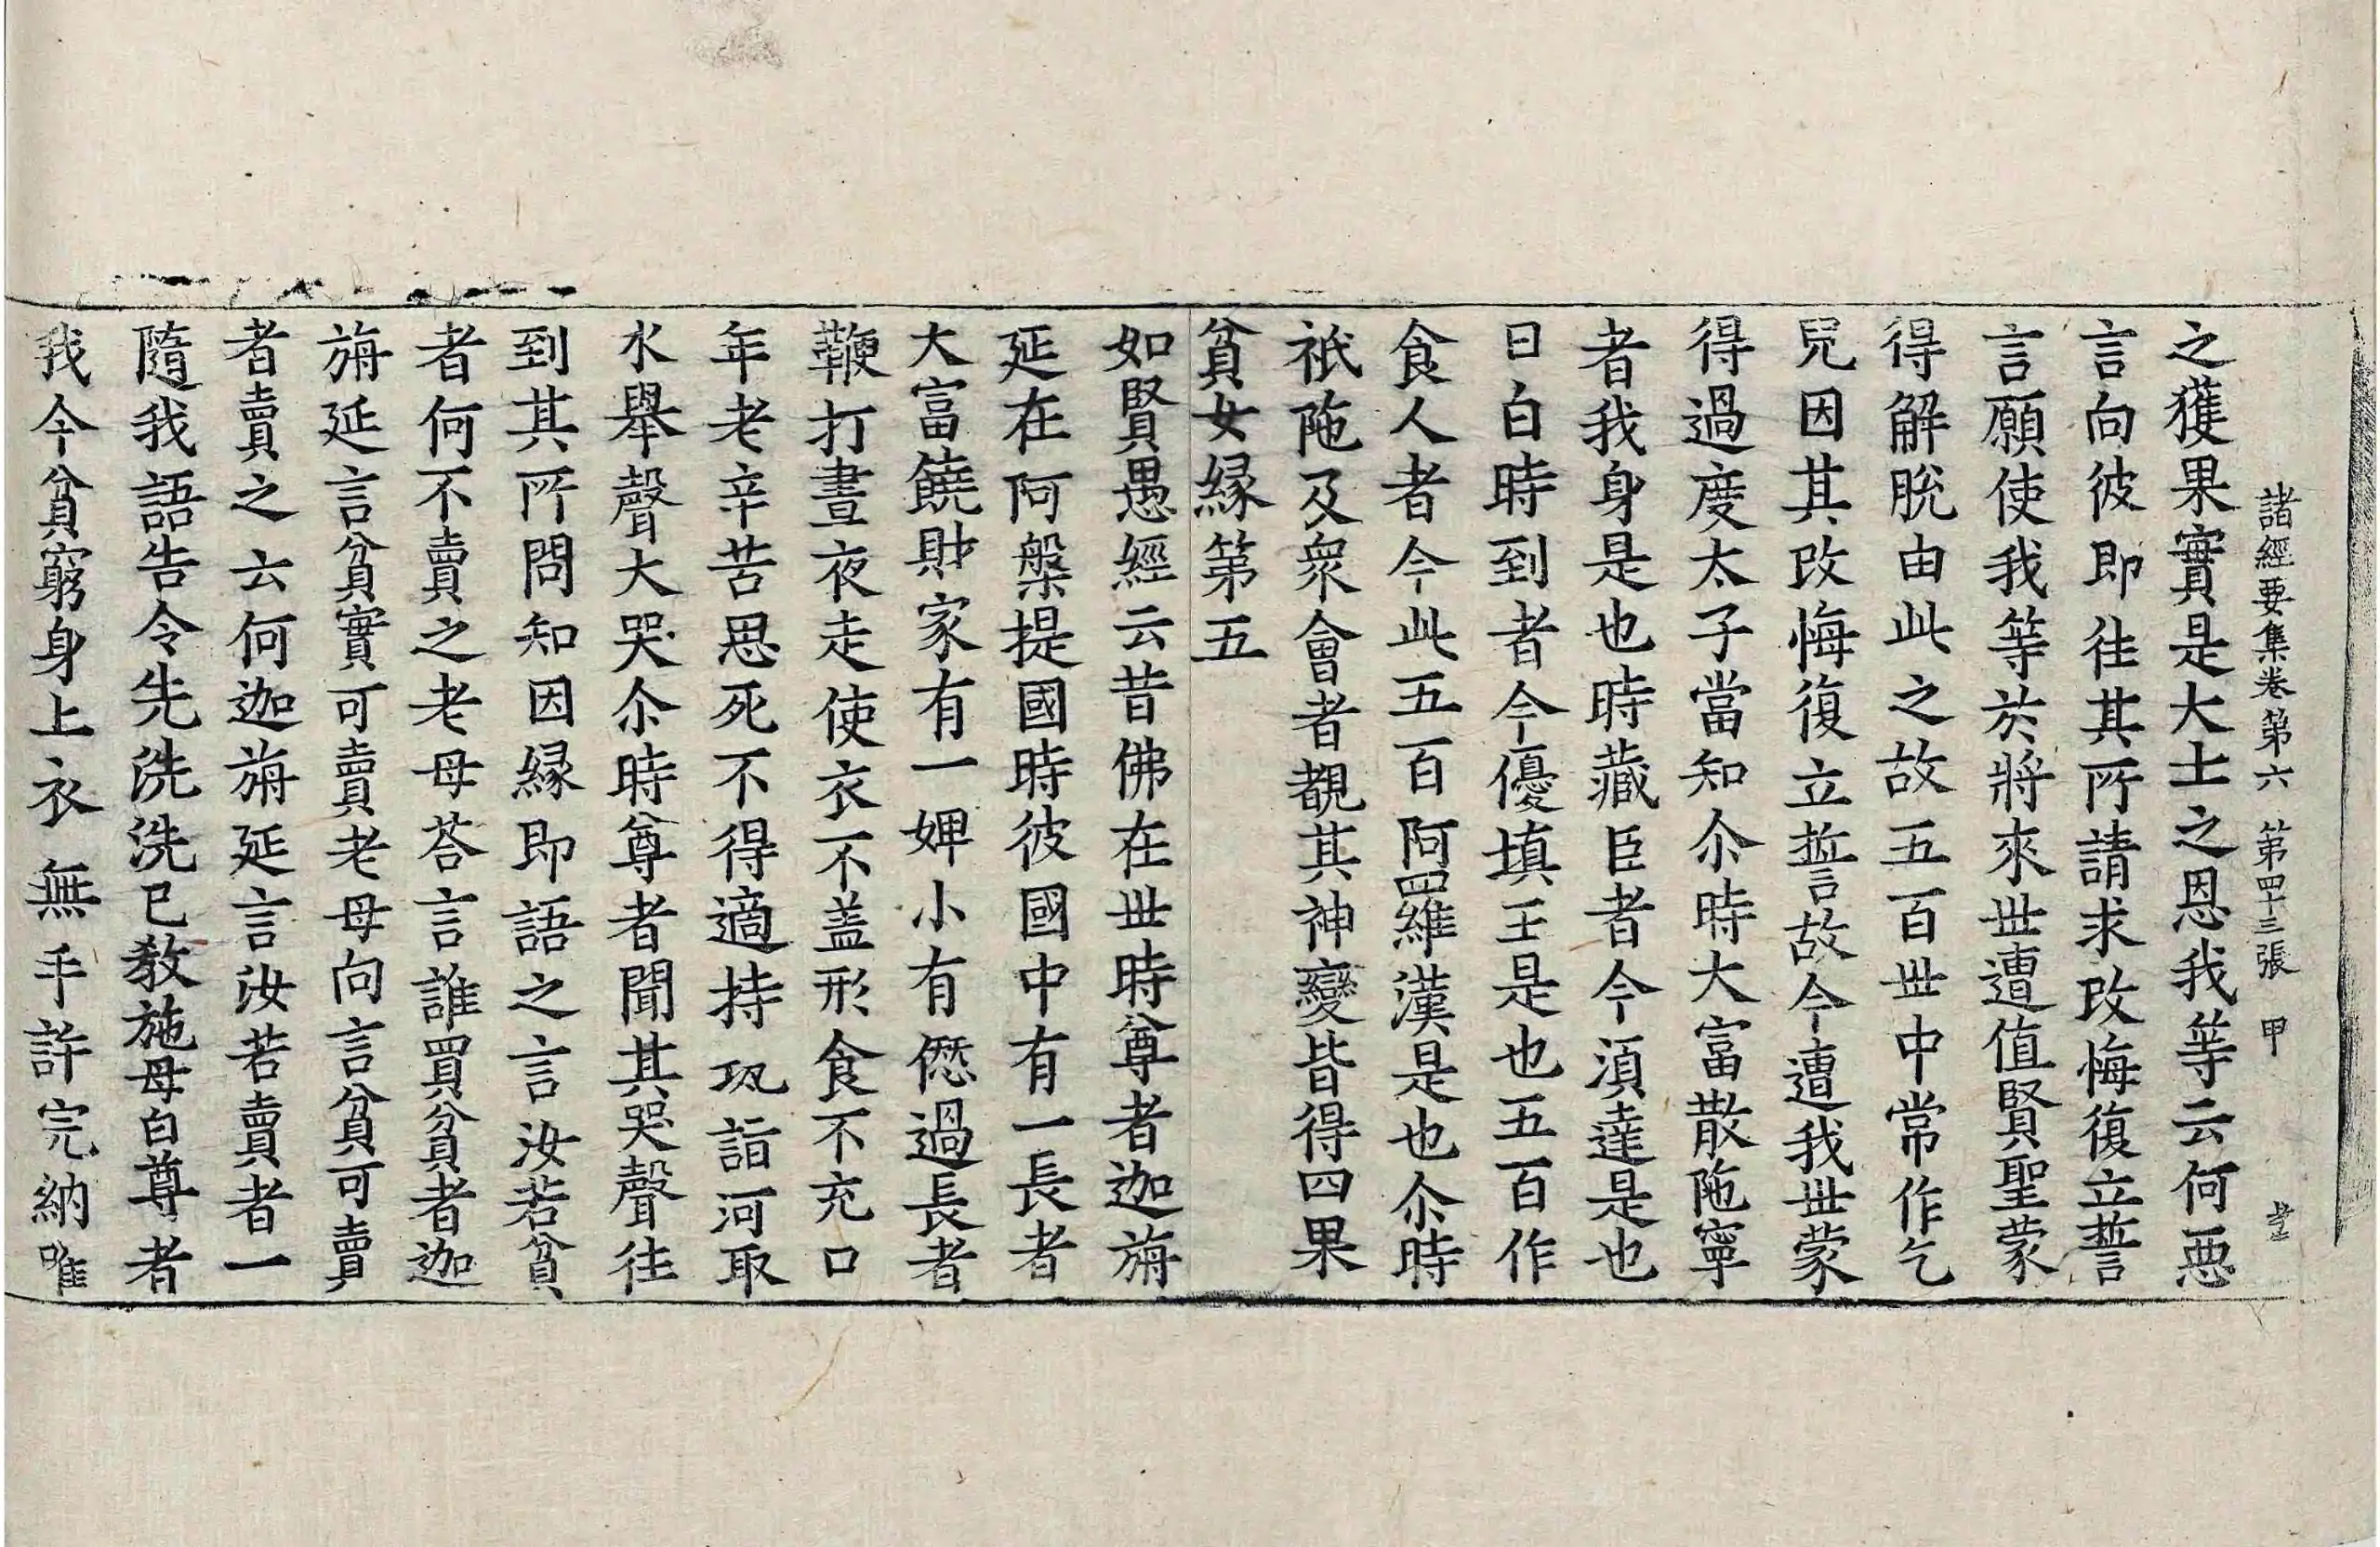 諸經要集卷第六 第四十三張 甲
之獲果實是大士之恩我等云何惡
言向彼即往其所請求改悔復立誓
言願使我等於將來世遭值賢聖蒙
得解脫由此之故五百世中常作乞
兒因其改悔復立誓故今遭我世蒙
得過度太子當知尒時大富散陁寧
者我身是也時藏臣者今湏達是也
日白時到者今優填王是也五百作
食人者今此五百阿羅漢是也尒時
祇陁及衆會者覩其神變皆得四果
貧女緣第五
如賢愚經云昔佛在世時尊者迦旃
延在阿槃提國時彼國中有一長者
大富饒財家有一婢小有愆過長者
鞭打晝夜走使衣不盖形食不充口
年老辛苦思死不得適持瓨詣河取
水舉聲大哭尒時尊者聞其哭聲往
到其所問知因緣即語之言汝若貧
者何不賣之老母荅言誰買貧者迦
旃延言貧實可賣老母向言貧可賣
者賣之云何迦旃延言汝若賣者一
隨我語告令先洗洗已教施母白尊者
我今貧窮身上衣無手許完納唯